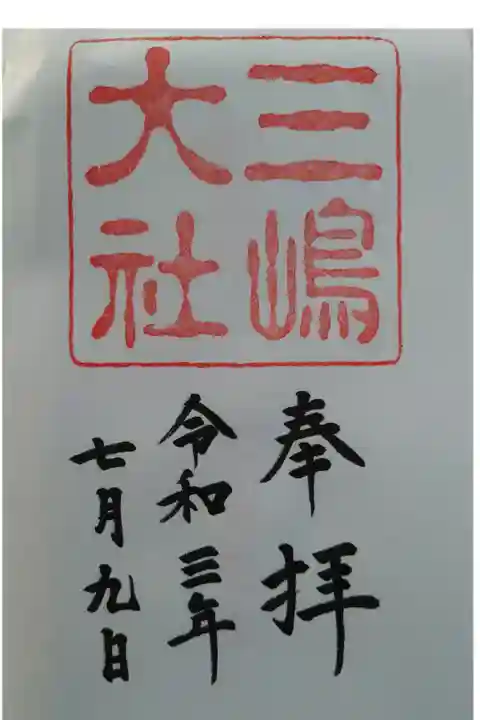 三嶋
大社
奉拝
令和三年
七月九日